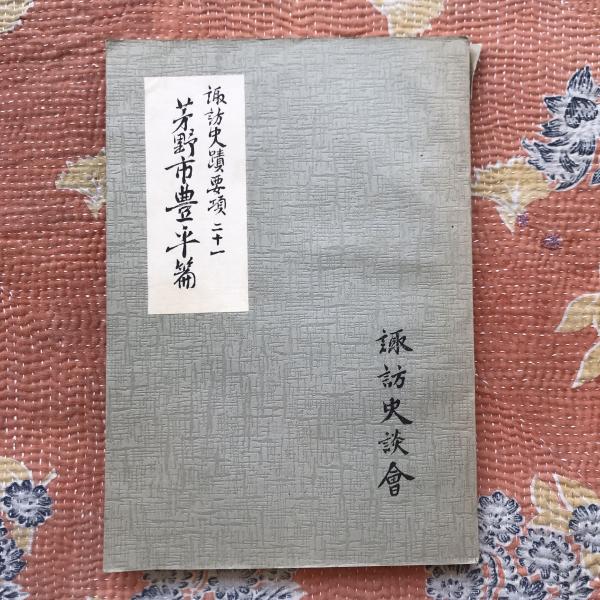 諏訪史蹟要項 二十一
茅野市豊平篇
諏訪史談會